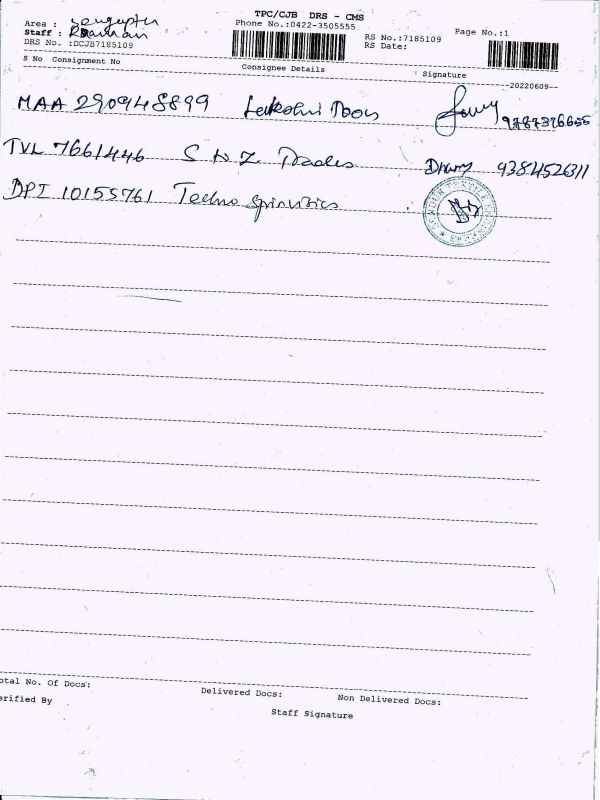 TPC/CJB DRS - CMS
Area :
Phone No.:0422-3505555
Page No.:1
Staff :
RS No.:7185109
DRS No. :DCJB7185109
RS Date:
S No Consignment No Consignee Details Signature
--20220609--
MAA 290948899
TVL 7661446 S N Z Trades 9384526311
DPI 10155761 Techno
otal No. Of Docs: Delivered Docs: Non Delivered Docs:
erified By Staff Signature